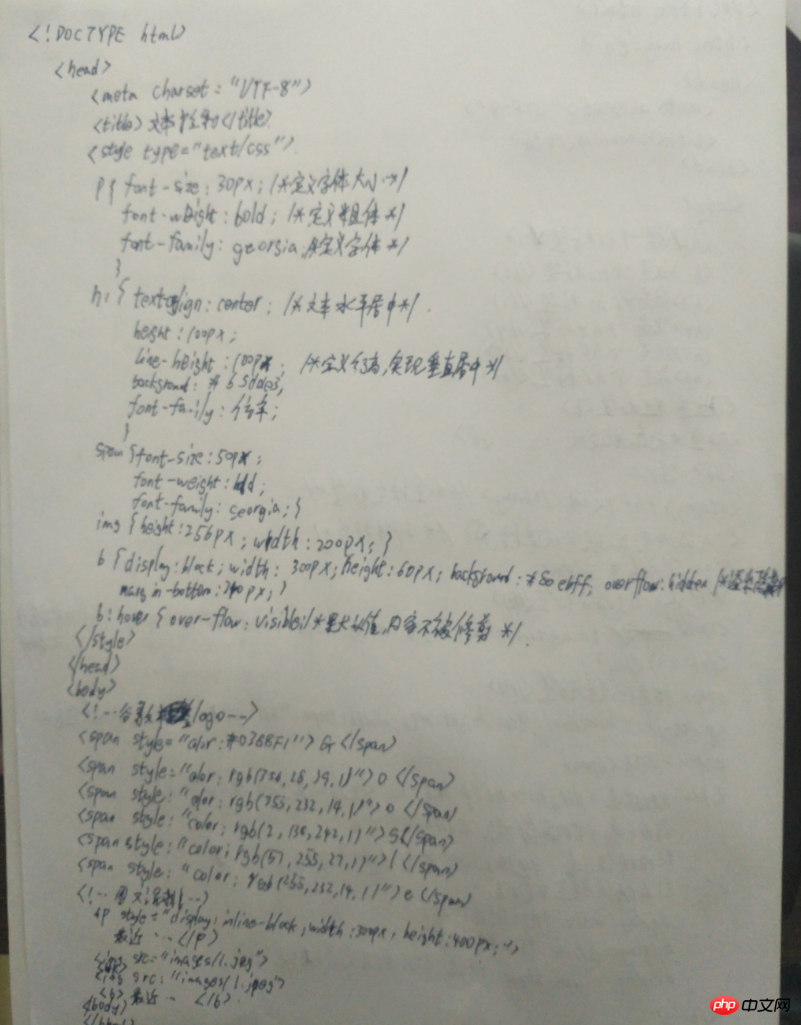 <!DOCTYPE html>
<head>
<meta charset="UTF-8">
<title>文本控制</title>
<style type="text/css">
p{ font-size:30px; /*定义字体大小*/
font-weight:bold; /*定义粗体*/
font-family:georgia /*定义字体*/
}
h1{ text-align:center; /*文本水平居中*/
height:100px;
line-height:100px; /*定义行高,实现垂直居中*/
background:
font-family:
}
span{font-size:50px;
font-weight:bold;
font-family:georgia;}
img{height:256px;width:200px;}
b{display:block;width:300px;height:60px;background:#80ebff;overflow:hidden
margin-bottom: px;}
b:hover{over-flow:visible;/*默认值,内容不被修剪*/
</style>
</head>
<body>
<!-- logo-->
<span style="color:#0388F1">G</span>
<span style="color:rgb( )">o</span>
<span style="color:rgb(255,232,14,1)">o</span>
<span style="color:rgb(2,138,242,1)">g</span>
<span style:"color:rgb(57,255,27,1)">l</span>
<span style:"color:rgb(255,232,14,1)">e</span>
<!--图文混排-->
<p style="display:inline-block;width:500px;height:400px;">
最近…</p>
<img src="images/1.jpeg">
<img src="images/1.jpeg">
<b>最近…</b>
</body>
php 中文网